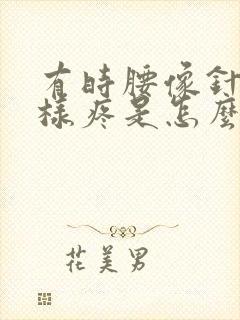 有時腰像針
樣疼是怎麼
花美男